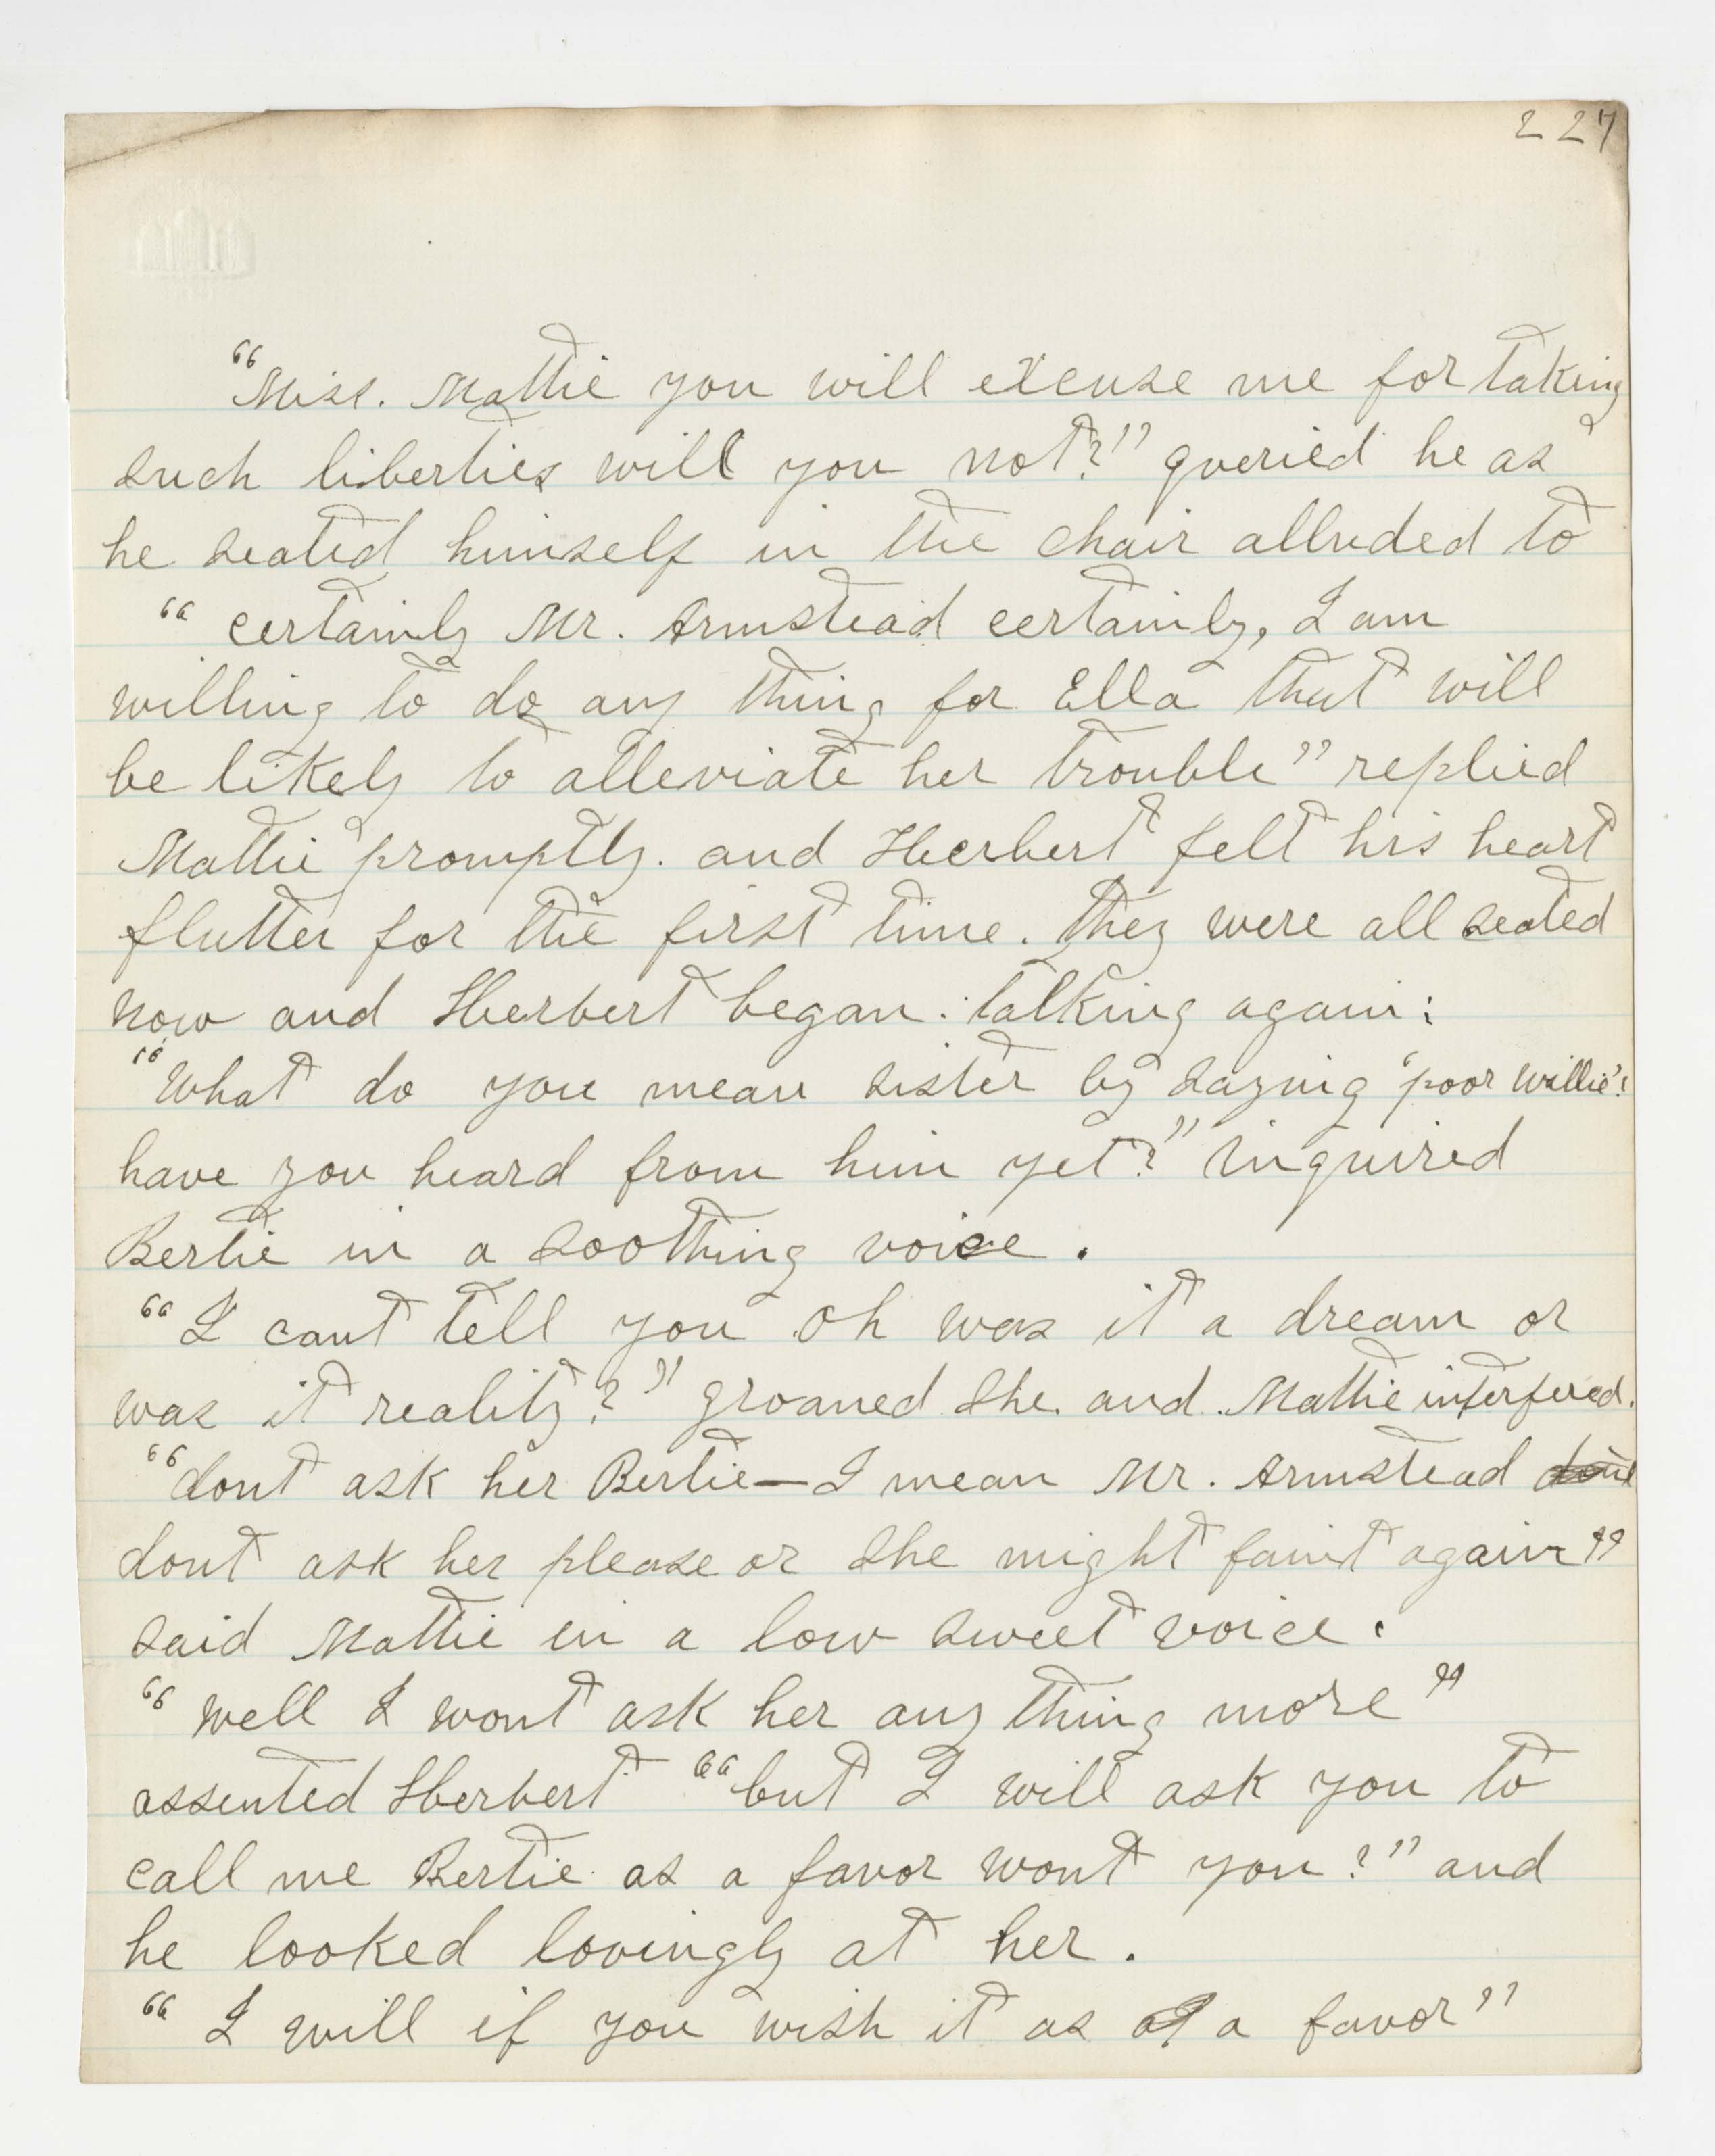 227
"Miss. Mattie you will excuse me for taking
such liberties will you not?" queried he as
he seated himself in the chair alluded to
"certainly Mr. Armstead certainly, I am
willing to do any thing for Ella that will
be likely to alleviate her trouble" replied
Mattie promptly. and Herbert felt his heart
flutter for the first time. they were all seated
now and Herbert began talking again:
"What do you mean sister by saying 'poor Willie'!
have you heard from him yet?" inquired
Bertie in a soothing voice.
"I cant tell you oh was it a dream or
was it reality?" groaned she and Mattie interfered.
"dont ask her Bertie—I mean Mr. Armstead
dont ask her please or she might faint again"
said Mattie in a low sweet voice.
"well I wont ask her any thing more"
assented Herbert "but I will ask you to
call me Bertie as a favor wont you?" and
he looked lovingly at her.
"I will if you wish it as a favor"